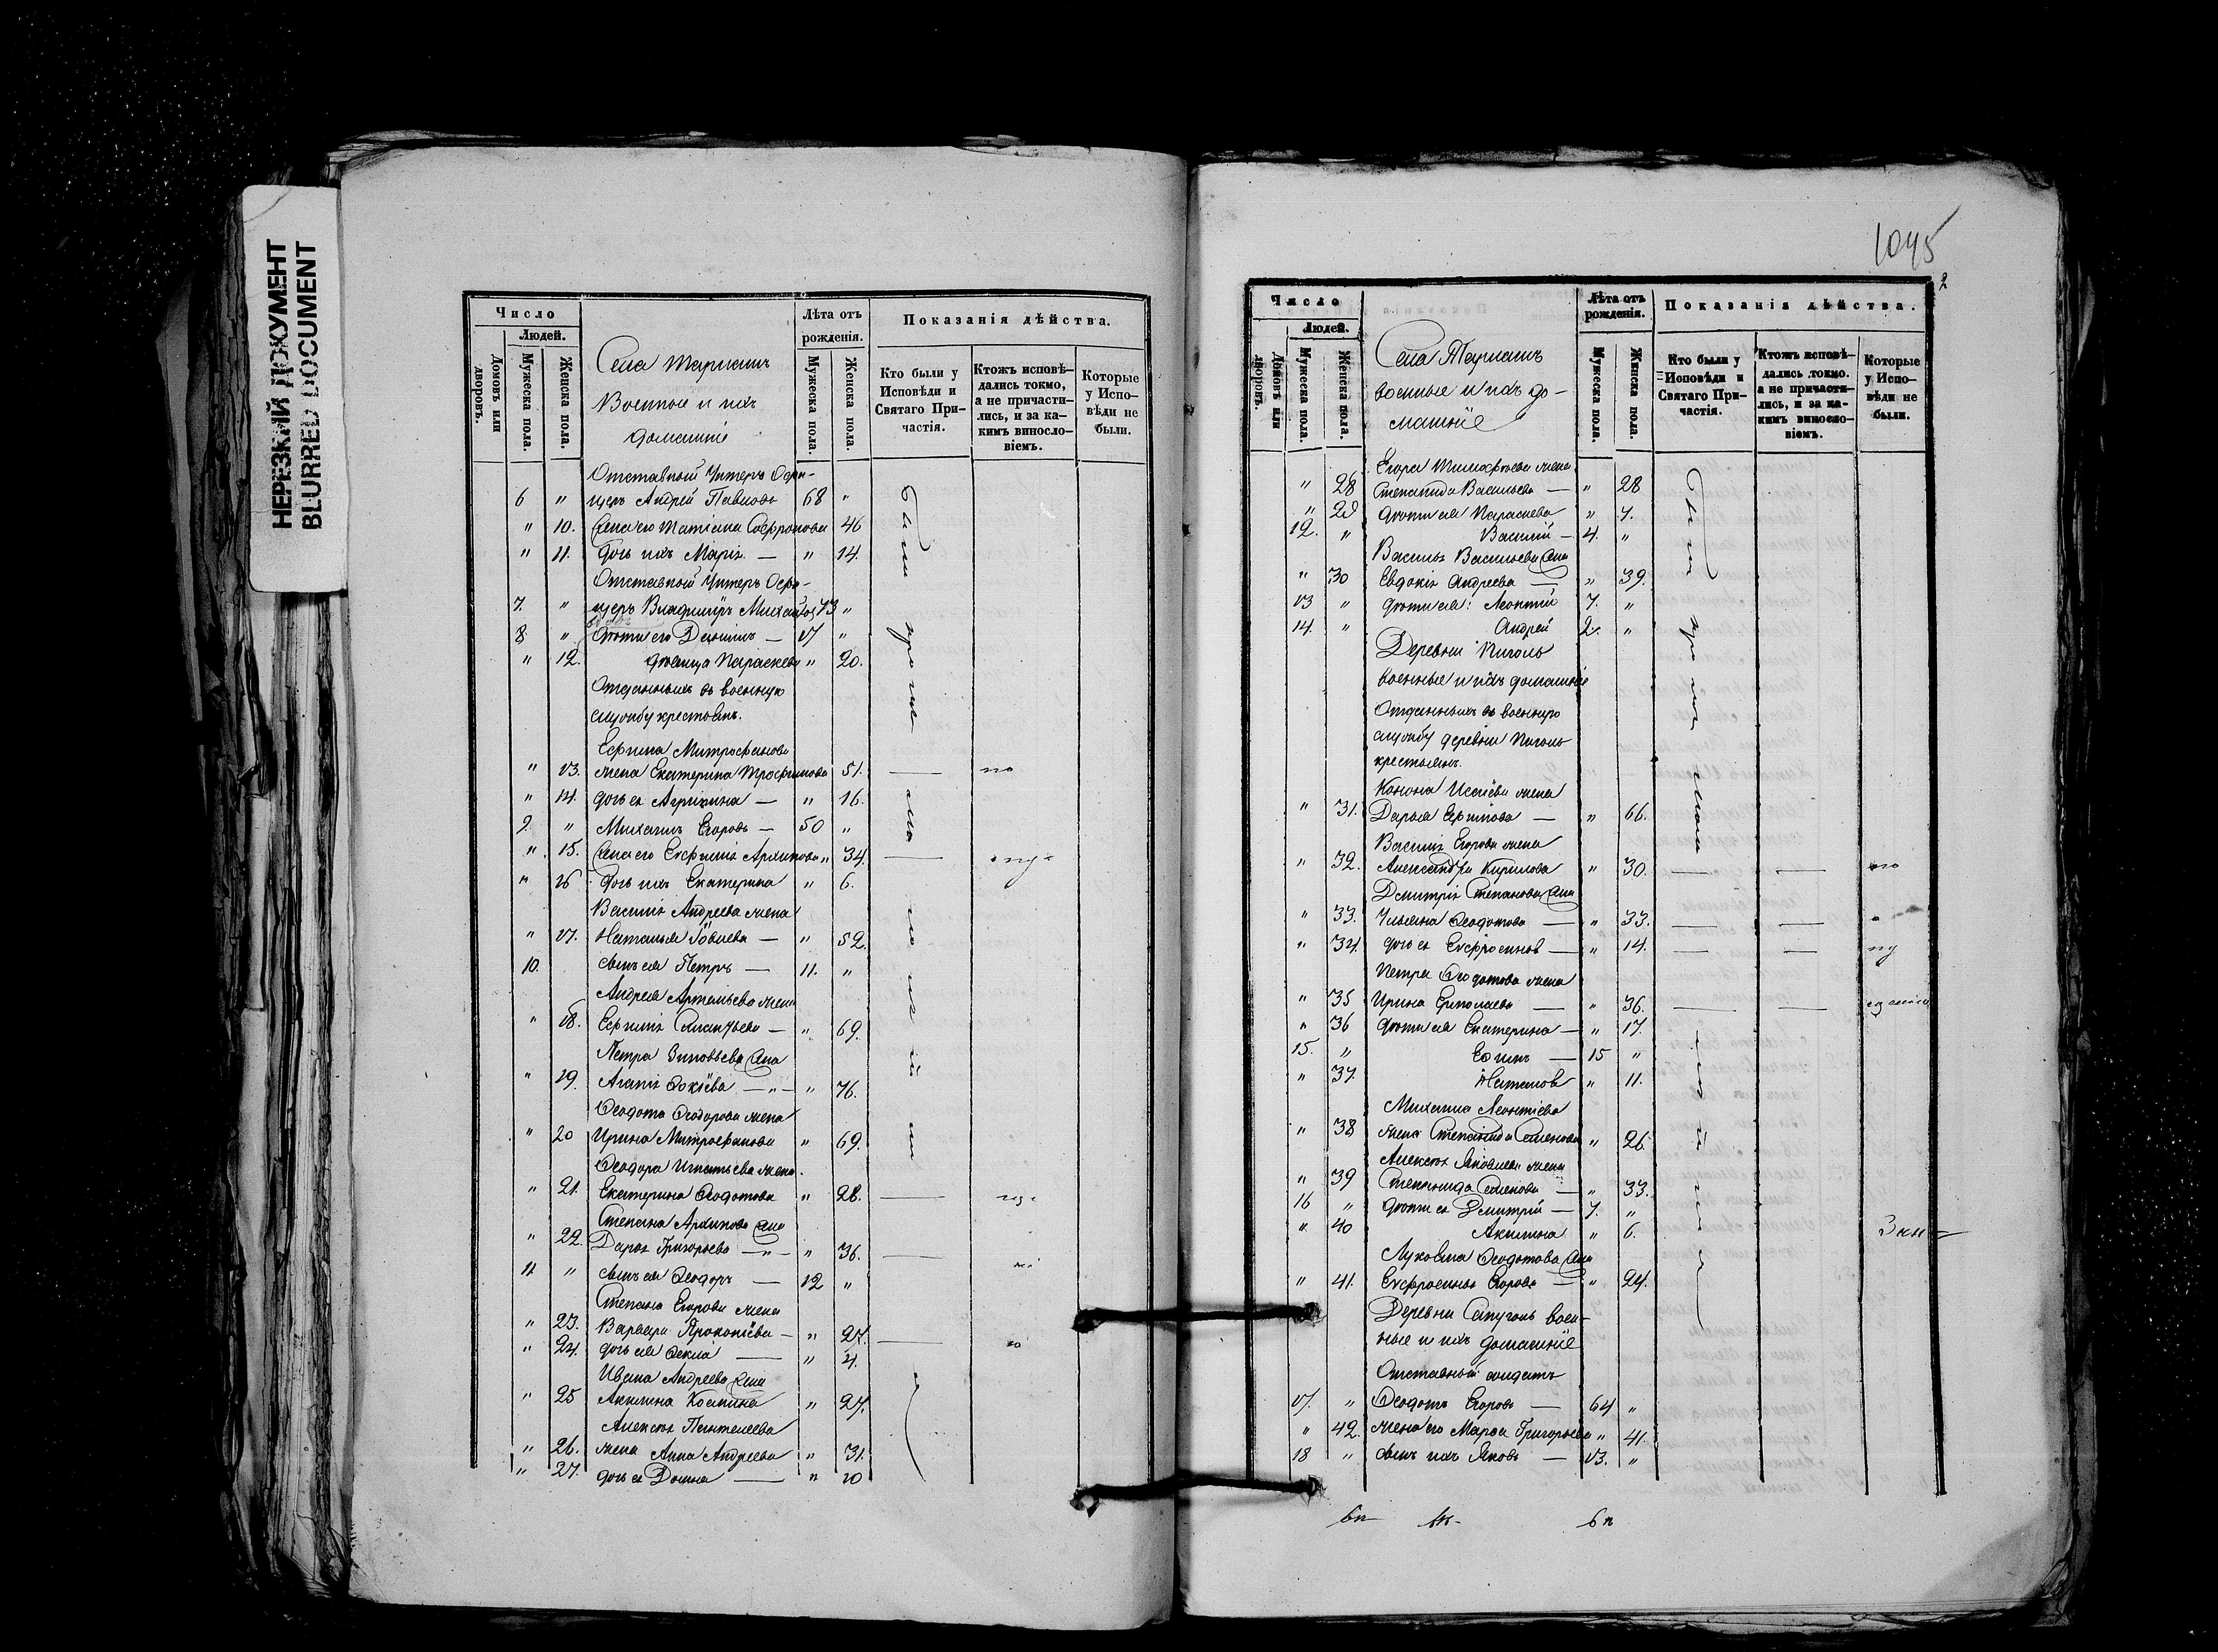 НЕРЕЗКИЙ ДОКУМЕНТ
BLURRED DOCUMENT
Число
Людей.
Домовъ или дворовъ.
Мужеска пола.
Женска пола.
Села
Военные и ихъ
домашніе
Лѣта отъ рожденія.
Мужеска пола.
Женска пола.
Показанія дѣйства.
Кто были у Исповѣди и Святаго Причастія.
Ктожъ исповѣдались токмо, а не причастились, и за какимъ винословіемъ.
Которые у Исповѣди не были.
Отставный Унтеръ Офи-
6 " церъ Андрей Павловъ 68 "
" 10. Жена его Татіана Софронова 46
" 11. Дочь ихъ Марія — " 14.
Отставный Унтеръ Офи-
7. " церъ Владиміръ Михайловъ 73 "
8. " Дѣти его — 17 "
" 12. дѣвица Параскева " 20.
Отданныхъ въ военную
службу крестьянъ.
Ефима Митрофанова
" 13. жена Екатерина Трофимова 51.
" 14. дочь ея Агрипина — " 16.
9. " Михаилъ Егоровъ — 50 "
" 15. Жена его Евфимія Архипова " 34.
" 16 Дочь ихъ Екатерина " 6.
Василія Андреева жена
" 17. Наталья — " 52.
10. сынъ ея Петръ — 11. "
Андрея Артемьева жена
" 18. Ефимія — " 69.
Петра Зиновьева жена
" 19. Агапія Фокіева — " — " 76.
Ѳеодота Ѳеодорова жена
" 20 Ирина Митрофанова " 69.
Ѳеодора Игнатьева жена
" 21. Екатерина Ѳеодотова " 28.
Степана Архипова жена
" 22. Дарья Григорьева — " — " 36.
11 " сынъ ея Ѳеодоръ — 12 "
Степана Егорова жена
" 23. Варвара Прокопіева — " 27.
" 24. дочь ея Ѳекла — " 4.
Ивана Андреева жена
" 25 Акилина Космина " 27.
Алексѣя Пантелеева
" 26. жена Анна Андреева " 31.
" 27. дочь ея Домна — " 10
1045
2
Число
Людей.
Домовъ или дворовъ.
Мужеска пола.
Женска пола.
Села
военные и ихъ до-
машніе
Лѣта отъ рожденія.
Мужеска пола.
Женска пола.
Показанія дѣйства.
Кто были у Исповѣди и Святаго Причастія.
Ктожъ исповѣдались токмо, а не причастились, и за какимъ винословіемъ.
Которые у Исповѣди не были.
Егора Тимофѣева жена
" 28 Степанида Васильева — " 28
" 29 дѣти ея Параскева " 7.
12. " Василій — 4. "
Василія Васильева жена
" 30 Евдокія Андреева — " 39.
13 " дѣти ея: Леонтій 7. "
14. " Андрей 2. "
Деревни
военные и ихъ домашніе
Отданныхъ въ военную
службу деревни
крестьянъ.
Конона Исаіева жена
" 31. Дарья Ефимова — " 66.
Василія Егорова жена
" 32. Александра Кирилова " 30.
Дмитрія Степанова жена
" 33. Ульяна Ѳеодотова — " 33.
" 34. дочь ея Евфросинія — " 14.
Петра Ѳеодотова жена
" 35 Ирина Ермолаева — " 36.
" 36 дѣти ея Екатерина — " 17.
15. " Ефимъ — 15 "
" 37. Наталья " 11.
Михаила Леонтіева
" 38 жена Степанида Семенова " 26.
Алексѣя Яковлева жена
" 39 Степанида Семенова — " 33.
16 " дѣти ея Дмитрій — 7. "
" 40 Акилина " 6.
Ѳеодотова жена
" 41. Евфросинья Егорова — " 24.
Деревни воен-
ные и ихъ домашніе
Отставный солдатъ
17. " Ѳеодотъ Егоровъ — 64 "
" 42. жена его Марѳа Григорьева " 41.
18 " сынъ ихъ Яковъ — 13. "